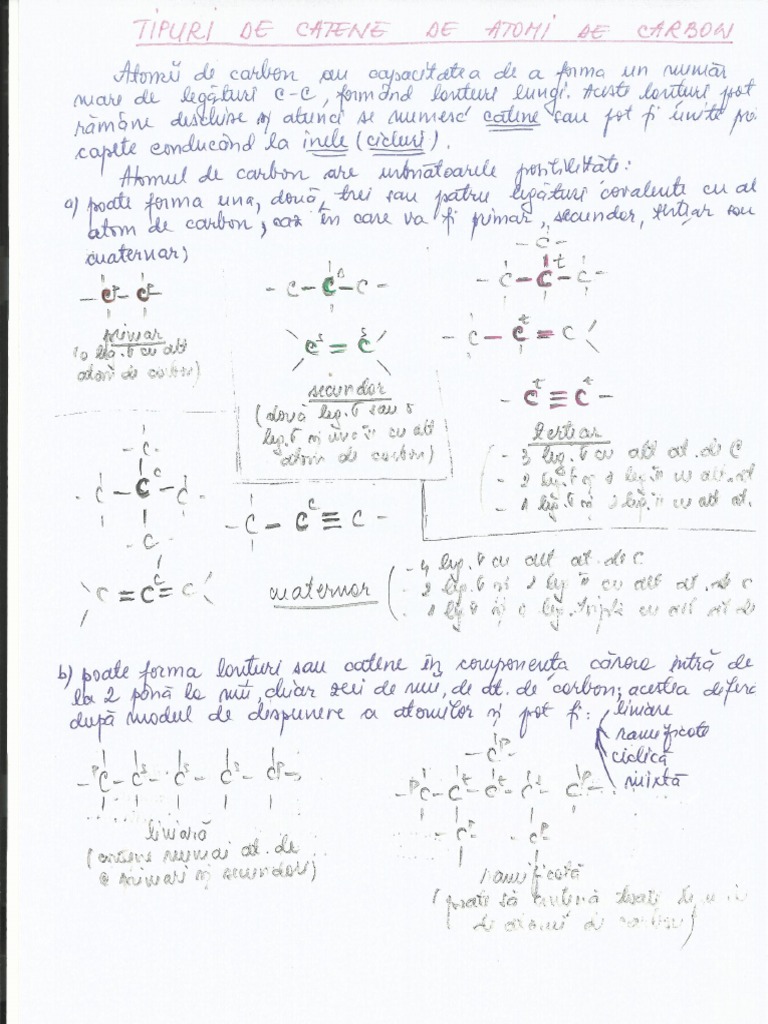 TIPURI DE CATENE DE ATOMI DE CARBON
Atomii de carbon au capacitatea de a forma un număr
mare de legături C-C, formând lanțuri lungi. Aceste lanțuri pot
rămâne deschise și atunci se numesc catene sau pot fi unite prin
capete conducând la inele (cicluri).
Atomul de carbon are următoarele posibilități:
a) poate forma una, două, trei sau patru legături covalente cu alt
atom de carbon, caz în care va fi primar, secundar, terțiar sau
cuaternar)
primar
(o leg. σ cu alt
atom de carbon)
secundar
(două leg. σ sau o
leg. σ și una π cu alt
atom de carbon)
terțiar
- 3 leg. σ cu alt at. de C
- 2 leg. σ și 1 leg. π cu alt. at.
- 1 leg. σ și 2 leg. π cu alt at.
cuaternar
- 4 leg. σ cu alt at. de C
- 2 leg. σ și 2 leg. π cu alt at. de C
- 1 leg σ și o leg. triplă cu alt at de
b) poate forma lanțuri sau catene în componența cărora intră de
la 2 până la mii, chiar zeci de mii, de at. de carbon; acestea diferă
după modul de dispunere a atomilor și pot fi: liniare
ramificate
ciclică
mixtă
liniară
(conține numai at. de
C primari și secundari)
ramificată
(poate să conțină toate
de atomi de carbon)